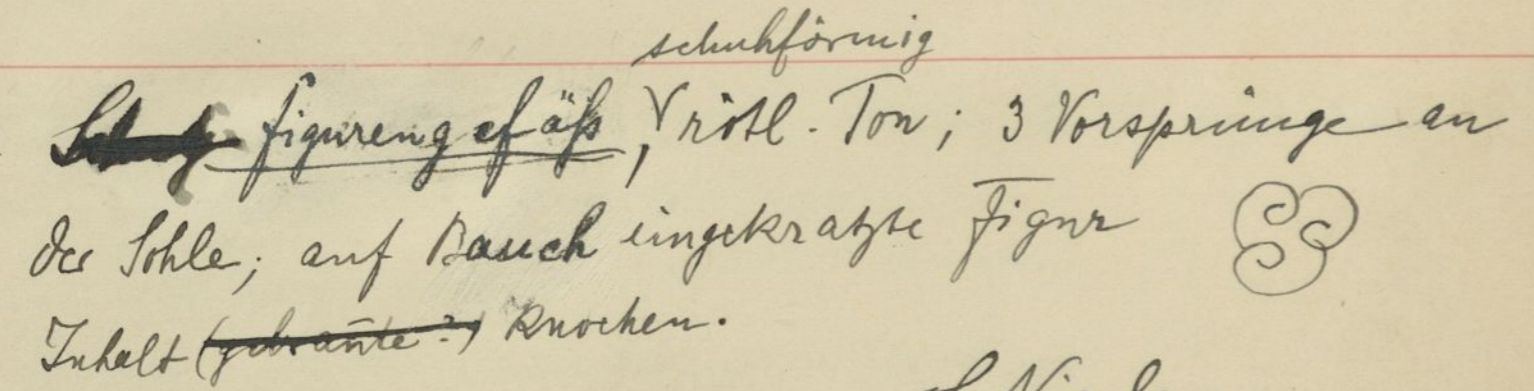 schuhförmig
figurengefäß, rötl. Ton; 3 Vorsprünge an
der Sohle; auf Bauch eingekratzte Figur
Inhalt (gebrannte?) Knochen.